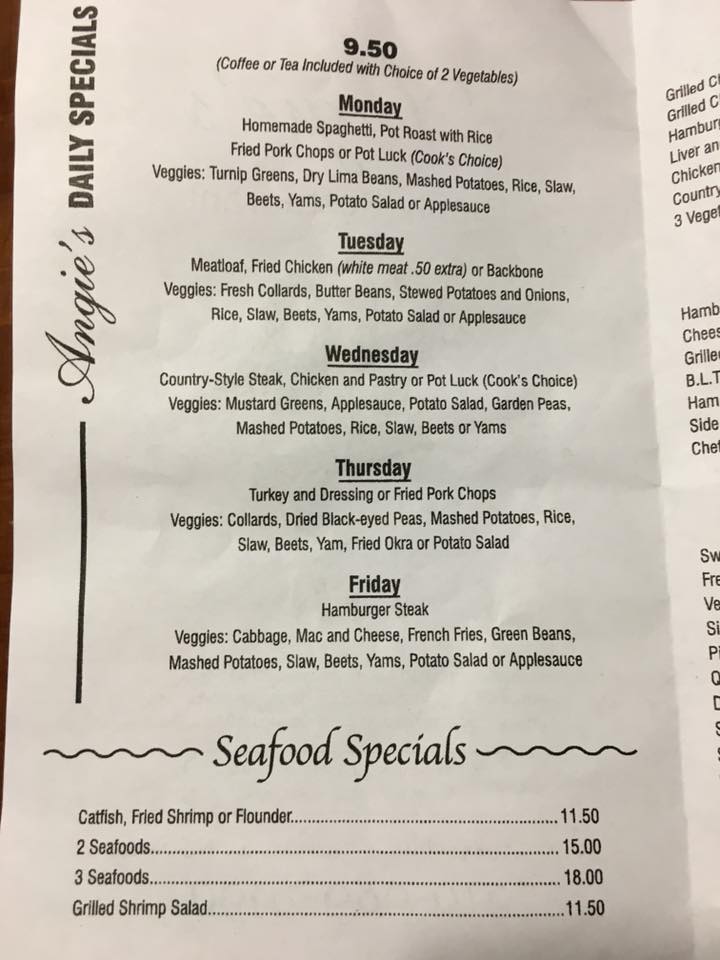 Angie's DAILY SPECIALS
9.50
(Coffee or Tea Included with Choice of 2 Vegetables)
Monday
Homemade Spaghetti, Pot Roast with Rice
Fried Pork Chops or Pot Luck (Cook's Choice)
Veggies: Turnip Greens, Dry Lima Beans, Mashed Potatoes, Rice, Slaw,
Beets, Yams, Potato Salad or Applesauce
Tuesday
Meatloaf, Fried Chicken (white meat .50 extra) or Backbone
Veggies: Fresh Collards, Butter Beans, Stewed Potatoes and Onions,
Rice, Slaw, Beets, Yams, Potato Salad or Applesauce
Wednesday
Country-Style Steak, Chicken and Pastry or Pot Luck (Cook's Choice)
Veggies: Mustard Greens, Applesauce, Potato Salad, Garden Peas,
Mashed Potatoes, Rice, Slaw, Beets or Yams
Thursday
Turkey and Dressing or Fried Pork Chops
Veggies: Collards, Dried Black-eyed Peas, Mashed Potatoes, Rice,
Slaw, Beets, Yam, Fried Okra or Potato Salad
Friday
Hamburger Steak
Veggies: Cabbage, Mac and Cheese, French Fries, Green Beans,
Mashed Potatoes, Slaw, Beets, Yams, Potato Salad or Applesauce
Seafood Specials
Catfish, Fried Shrimp or Flounder 11.50
2 Seafoods 15.00
3 Seafoods 18.00
Grilled Shrimp Salad 11.50
Grilled
Grilled
Liver
Chicken
Country
3
B.L.T
Ham
Side